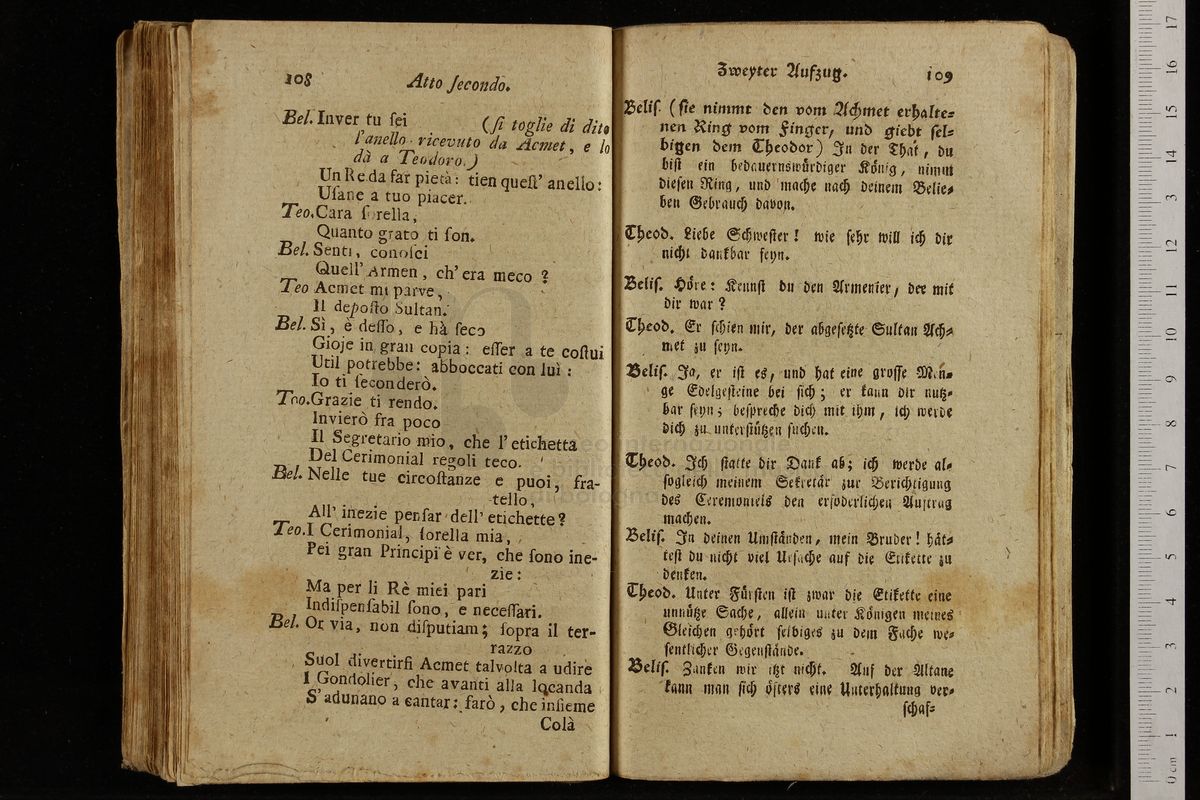 108 Atto ſecondo.
Bel. Inver tu ſei (ſi toglie di dito
l'anello ricevuto da Acmet, e lo
dà a Teodoro.)
Un Re da far pietà: tien queſt' anello:
Uſane a tuo piacer.
Teo. Cara ſorella,
Quanto grato ti ſon.
Bel. Senti, conoſci
Quell' Armen, ch' era meco ?
Teo Acmet mi parve,
Il depoſto Sultan.
Bel. Sì, è deſſo, e hà ſeco
Gioje in gran copia: eſſer a te coſtui
Util potrebbe: abboccati con luì:
Io ti ſeconderò.
Teo. Grazie ti rendo.
Invierò fra poco
Il Segretario mio, che l' etichetta
Del Cerimonial regoli teco.
Bel. Nelle tue circoſtanze e puoi, fra-
tello,
All' inezie penſar dell' etichette?
Teo. I Cerimonial, ſorella mia,
Pei gran Principi è ver, che ſono ine-
zie:
Ma per li Rè miei pari
Indiſpenſabil ſono, e neceſſari.
Bel. Or via, non diſputiam; ſopra il ter-
razzo
Suol divertirſi Acmet talvolta a udire
I Gondolier, che avanti alla locanda
S' adunano a cantar: farò, che inſieme
Colà
Zweyter Aufzug. 109
Beliſ. (ſie nimmt den vom Achmet erhalte-
nen Ring vom Finger, und giebt ſel-
bigen dem Theodor) In der That, du
biſt ein bedauernswürdiger König, nimm
dieſen Ring, und mache nach deinem Belie-
ben Gebrauch davon.
Theod. Liebe Schweſter! wie ſehr will ich dir
nicht dankbar ſeyn.
Beliſ. Höre: Kennſt du den Armenier, der mit
dir war ?
Theod. Er ſchien mir, der abgeſetzte Sultan Ach-
met zu ſeyn.
Beliſ. Ja, er iſt es, und hat eine groſſe Men-
ge Edelgeſteine bei ſich; er kann dir nutz-
bar ſeyn; beſpreche dich mit ihm, ich werde
dich zu unterſtützen ſuchen.
Theod. Ich ſtatte dir Dank ab; ich werde al-
ſogleich meinem Sekretär zur Berichtigung
des Ceremoniels den erfoderlichen Auftrag
machen.
Beliſ. In deinen Umſtänden, mein Bruder! hät-
teſt du nicht viel Urſache auf die Etikette zu
denken.
Theod. Unter Fürſten iſt zwar die Etikette eine
unnütze Sache, allein unter Königen meines
Gleichen gehört ſelbiges zu dem Fache we-
ſentlicher Gegenſtände.
Beliſ. Zanken wir itzt nicht. Auf der Altane
kann man ſich öfters eine Unterhaltung ver-
ſchaf-